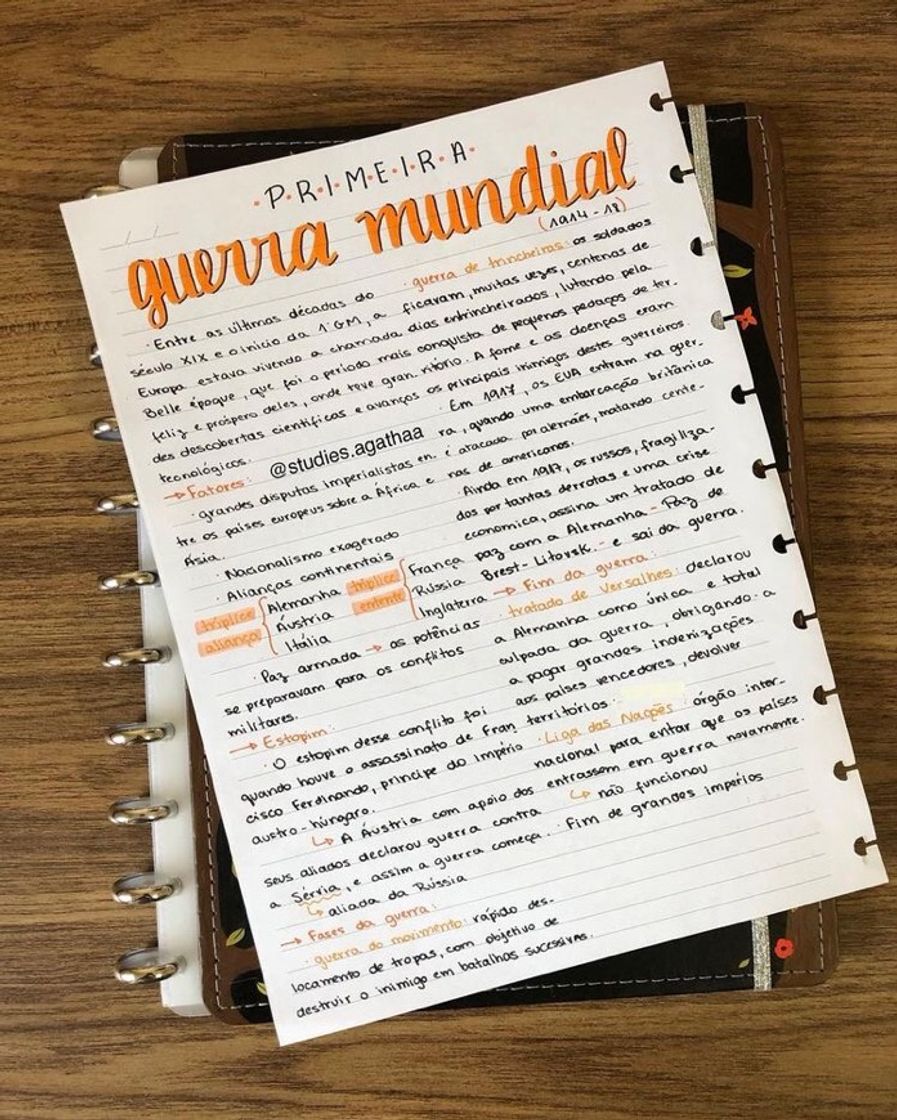 P.R.I.M.E.I.R.A
guerra mundial
(1914-18)
. Entre as últimas décadas do
século XIX e o início da 1ªGM, a
Europa estava vivendo a chamada
Belle époque, que foi o período mais
feliz e próspero deles, onde teve gran.
des descobertas científicas e avanços
tecnológicos.
@studies.agathaa
→ Fatores:
. grandes disputas imperialistas en.
tre os países europeus sobre a África e
Ásia.
. Nacionalismo exagerado
. Alianças continentais
tríplice aliança { Alemanha Áustria Itália
tríplice entente { França Rússia Inglaterra
. Paz armada → as potências
se preparavam para os conflitos
militares.
→ Estopim:
. O estopim desse conflito foi
quando houve o assassinato de Fran
cisco Ferdinando, príncipe do império
austro-húngaro.
↳ A Áustria com apoio dos
seus aliados declarou guerra contra
a Sérvia, e assim a guerra começa.
↳ aliada da Rússia
→ Fases da guerra:
. guerra do movimento: rápido des-
locamento de tropas, com objetivo de
destruir o inimigo em batalhas sucessivas.
. guerra de trincheiras: os soldados
ficaram, muitas vezes, centenas de
dias entrincheirados, lutando pela
conquista de pequenos pedaços de ter-
ritório. A fome e as doenças eram
os principais inimigos destes guerreiros.
. Em 1917, os EUA entram na guer-
ra, quando uma embarcação britânica
é atacada por alemães, matando cente-
nas de americanos.
. Ainda em 1917, os russos, fragiliza-
dos por tantas derrotas e uma crise
econômica, assina um tratado de
paz com a Alemanha - Paz de
Brest-Litovsk. - e sai da guerra.
→ Fim da guerra:
. tratado de Versalhes: declarou
a Alemanha como única e total
culpada da guerra, obrigando-a
a pagar grandes indenizações
aos países vencedores, devolver
territórios.
. Liga das Nações: órgão inter-
nacional para entar que os países
entrassem em guerra novamente.
↳ não funcionou
. Fim de grandes impérios